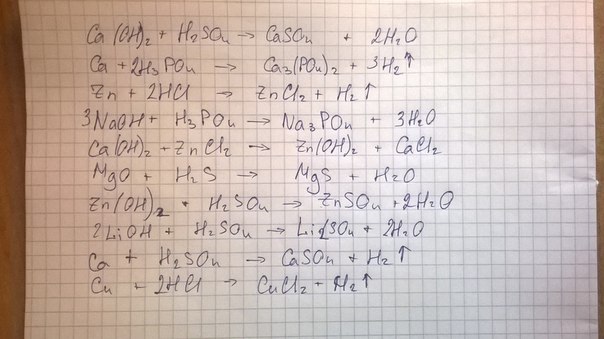 Ca(OH)₂ + H₂SO₄ → CaSO₄ + 2H₂O
Ca + 2H₃PO₄ → Ca₃(PO₄)₂ + 3H₂↑
Zn + 2HCl → ZnCl₂ + H₂↑
3NaOH + H₃PO₄ → Na₃PO₄ + 3H₂O
Ca(OH)₂ + ZnCl₂ → Zn(OH)₂ + CaCl₂
MgO + H₂S → MgS + H₂O
Zn(OH)₂ + H₂SO₄ → ZnSO₄ + 2H₂O
2LiOH + H₂SO₄ → Li₂SO₄ + 2H₂O
Ca + H₂SO₄ → CaSO₄ + H₂↑
Cu + 2HCl → CuCl₂ + H₂↑